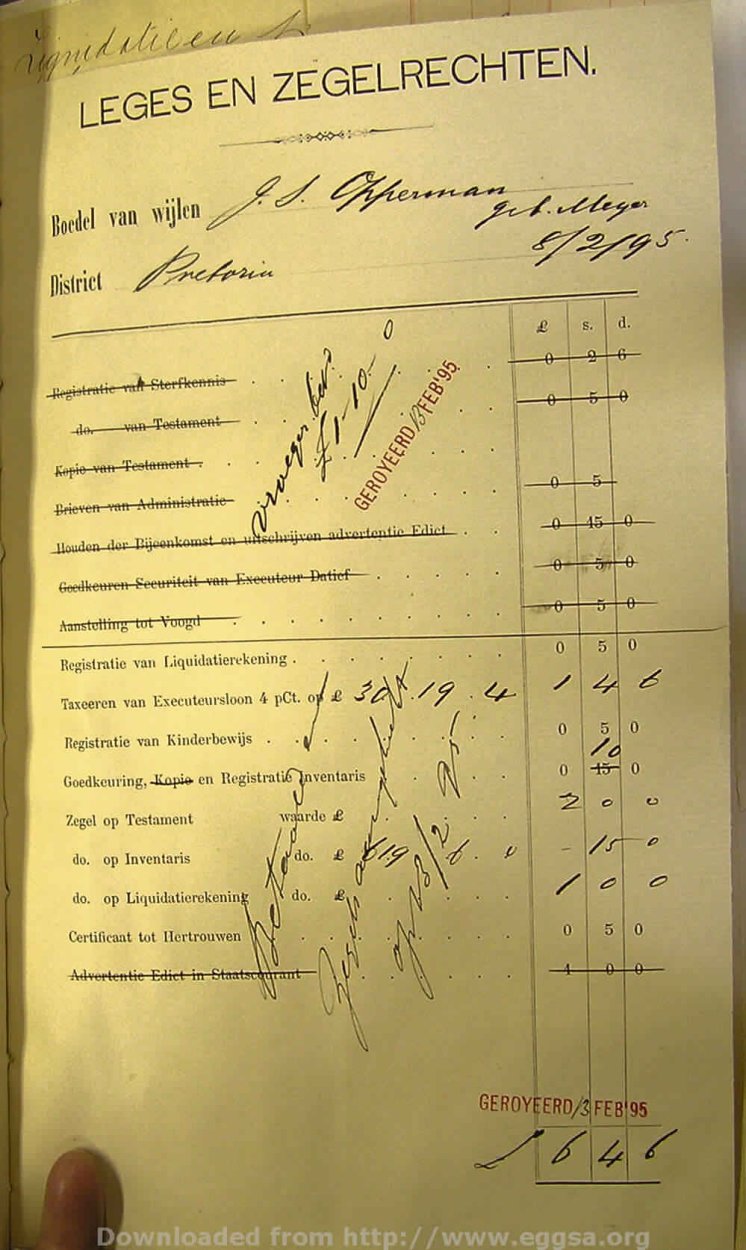 Liquidatie en
LEGES EN ZEGELRECHTEN.
Boedel van wijlen J. S. Opperman
geb. Meyer
8/2/95.
District Pretoria
£ s. d.
Registratie van Sterfkennis 0 2 6
do. van Testament 0 5 0
Kopie van Testament
Brieven van Administratie 0 5
Houden der Bijeenkomst en uitschrijven advertentie Edict 0 15 0
Goedkeuren Securiteit van Executeur Datief 0 5 0
Aanstelling tot Voogd 0 5 0
vroeger bet.
£1-10-0
GEROYEERD 13 FEB '95
Registratie van Liquidatierekening 0 5 0
Taxeeren van Executeursloon 4 pCt. op £ 30.19.4 1 4 6
Registratie van Kinderbewijs 0 5 0
10
Goedkeuring, Kopie en Registratie Inventaris 0 15 0
Zegel op Testament waarde £ 2 0 0
do. op Inventaris do. £ 619 6. 0 - 15 0
do. op Liquidatierekening do. £ 1 0 0
Certificaat tot Hertrouwen 0 5 0
Advertentie Edict in Staatscourant 1 0 0
Betaald
Zegels aangehecht
op 13/2/95
GEROYEERD 13 FEB '95
£ 6 4 6
Downloaded from http://www.eggsa.org